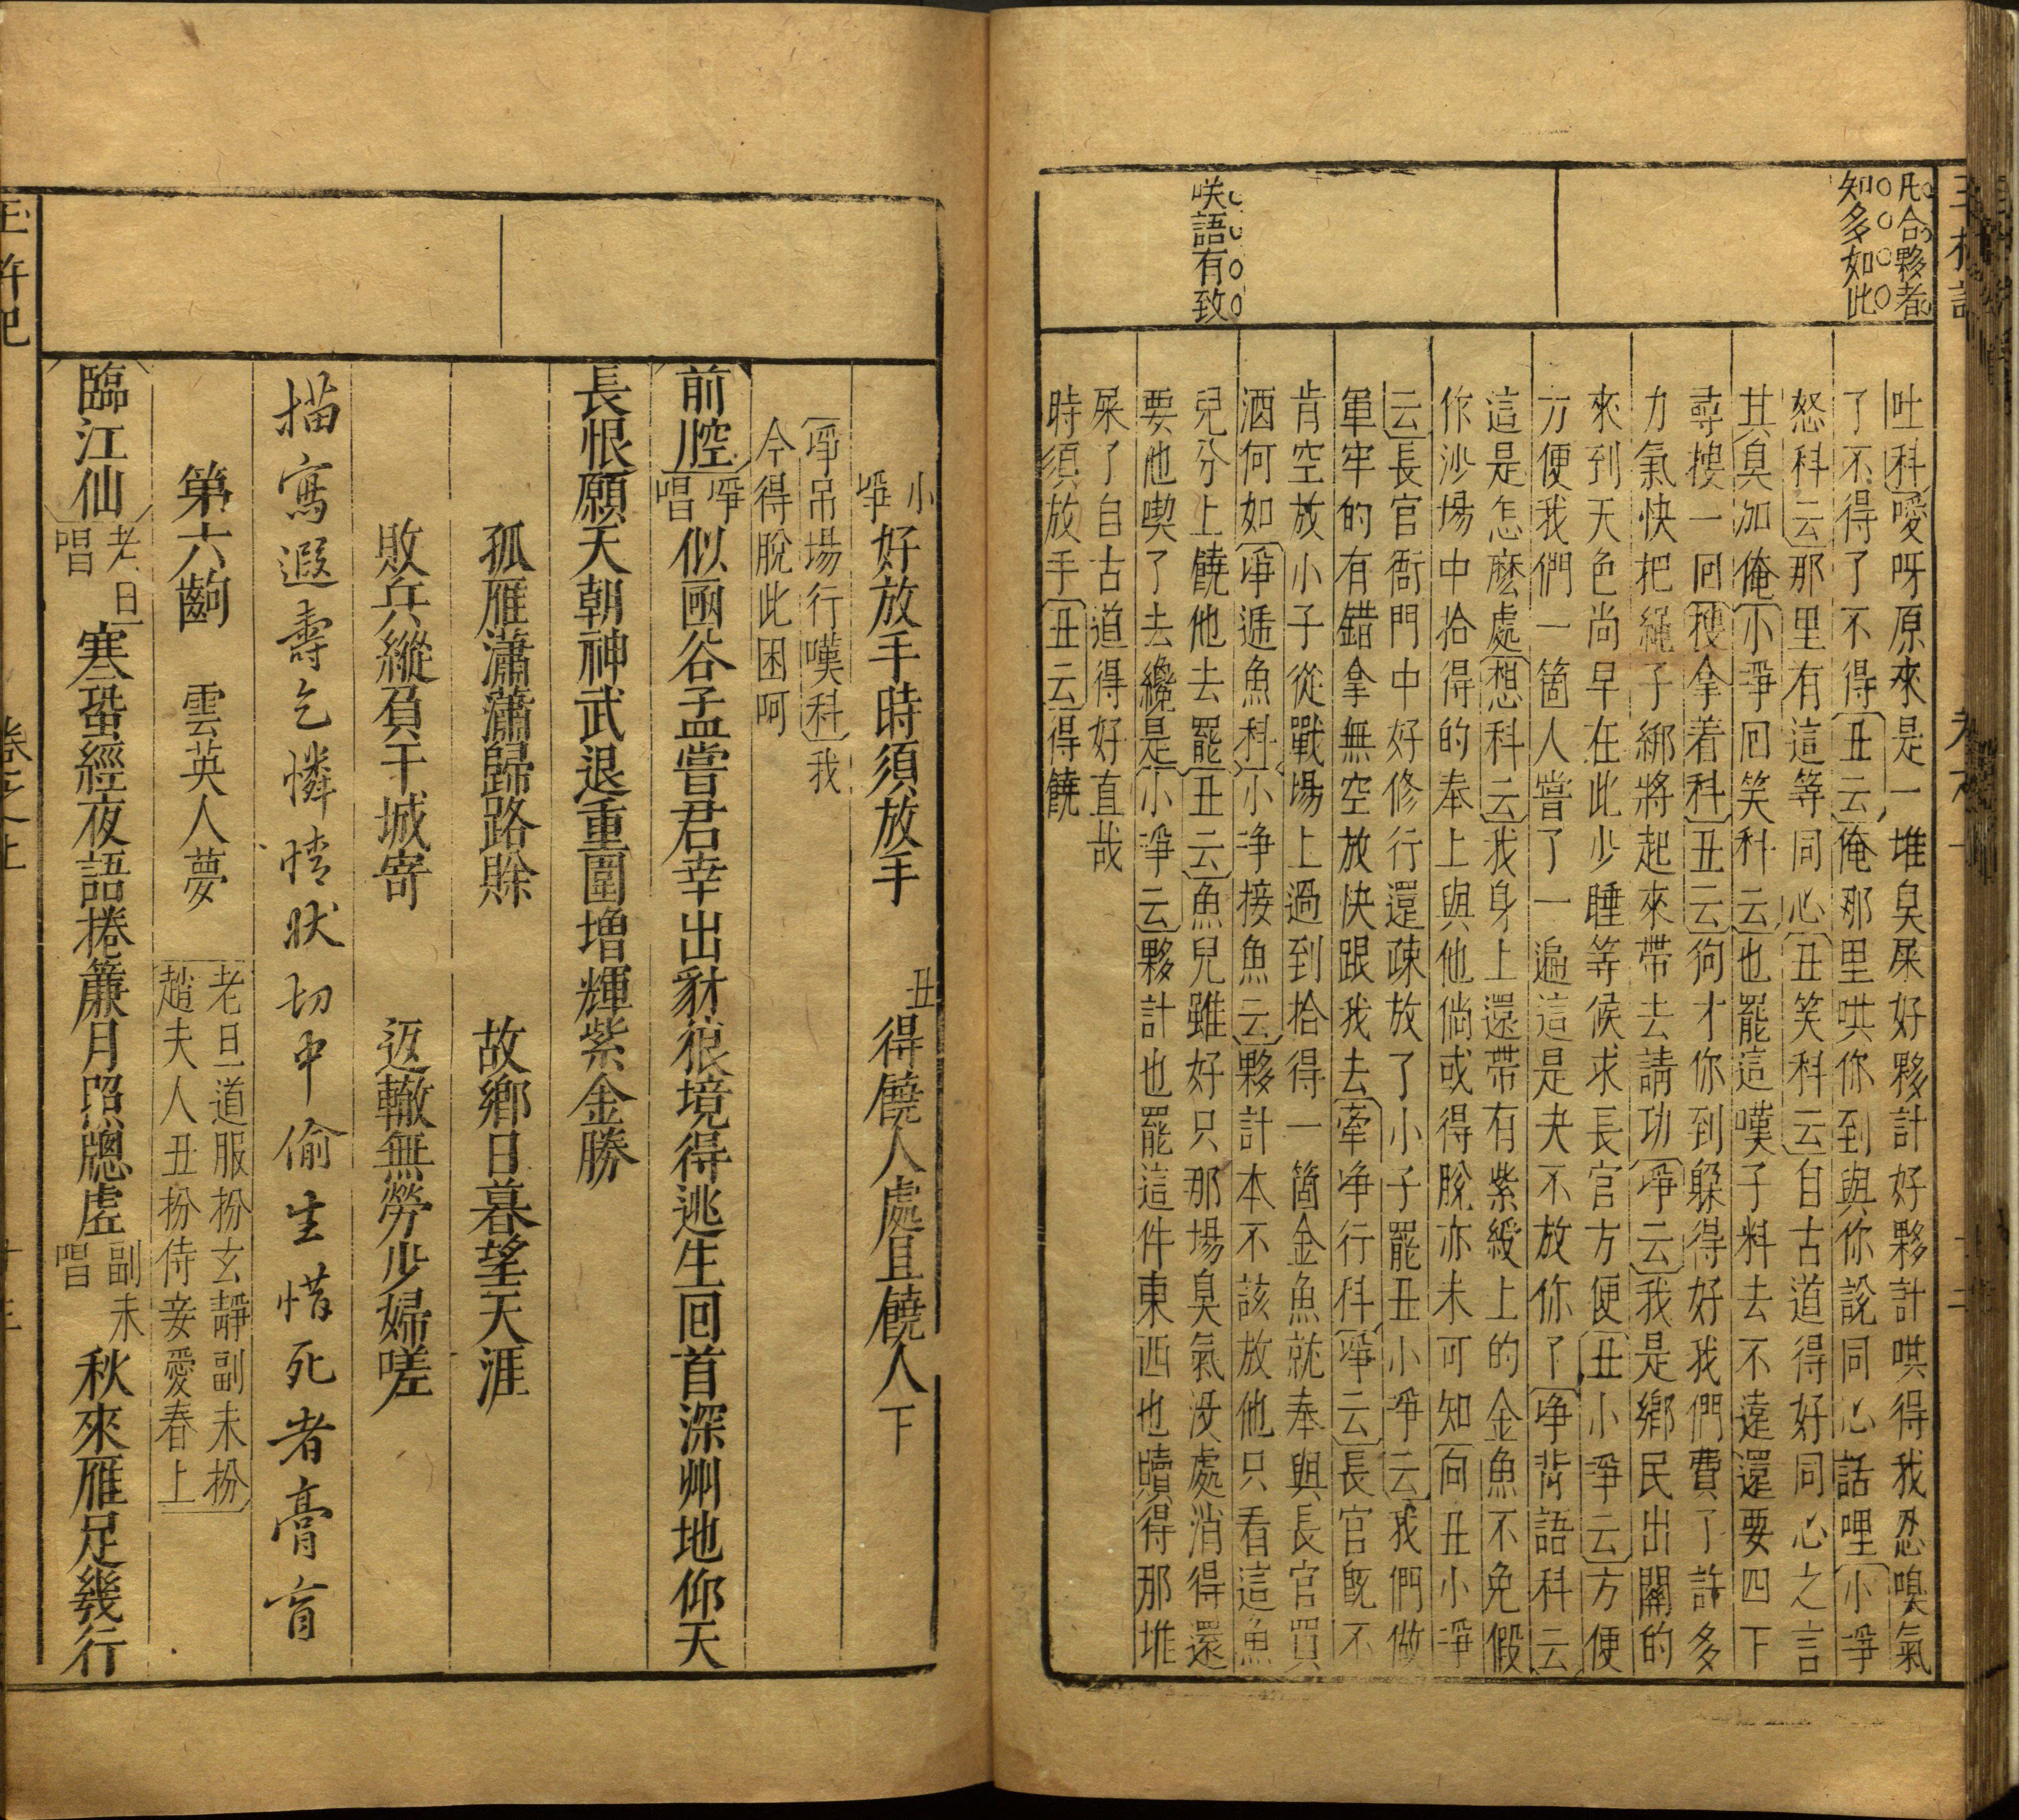 凡合夥者
知多如此
咲語有致
吐科噯呀原來是一堆臭屎好夥計好夥計哄得我忍嗅氣
了不得了不得丑云俺那里哄你到與你說同心話哩小淨
怒科云那里有這等同心丑笑科云自古道得好同心之言
其臭加俺小淨回笑科云也罷這嘆子料去不遠還要四下
尋摟一回摟拿着科丑云狗才你到躲得好我們費了許多
力氣快把繩子綁將起來帶去請功淨云我是鄉民出關的
來到天色尚早在此少睡等候求長官方便丑小淨云方便
方便我們一箇人嘗了一遍這是夬不放你了淨背語科云
這是怎麽處想科云我身上還帶有紫綬上的金魚不免假
作沙場中拾得的奉上與他倘或得脫亦未可知向丑小淨
云長官衙門中好修行還疎放了小子罷丑小淨云我們做
軍牢的有錯拿無空放快跟我去牽淨行科淨云長官旣不
肯空放小子從戰場上過到拾得一箇金魚就奉與長官買
酒何如淨遞魚科小淨接魚云夥計本不該放他只看這魚
兒分上饒他去罷丑云魚兒雖好只那場臭氣沒處消得還
要他喫了去纔是小淨云夥計也罷這件東西也贖得那堆
屎了自古道得好直哉
時須放手丑云得饒
小淨好放手時須放手 丑得饒人處且饒人下
淨吊場行嘆科我
今得脫此困呵
前腔淨唱似函谷孟嘗君幸出豺狼境得逃生回首深州地仰天
長恨願天朝神武退重圍增輝紫金勝
孤雁瀟瀟歸路賒 故鄉日暮望天涯
敗兵縱負干城寄 返轍無勞少婦嗟
描寫遐壽乞憐情狀切中偷生惜死者膏肓
第六齣 雲英人夢 老旦道服扮玄靜副末扮
趙夫人丑扮侍妾愛春上
臨江仙老旦唱寒蛩經夜語捲簾月照牕虛副末唱秋來雁足幾行